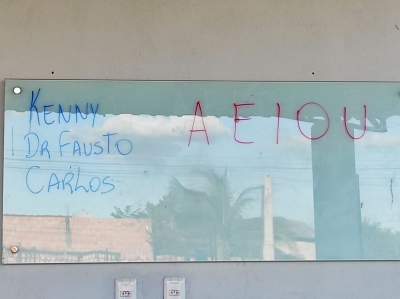 KENNY
DR FAUSTO
CARLOS
A E I O U